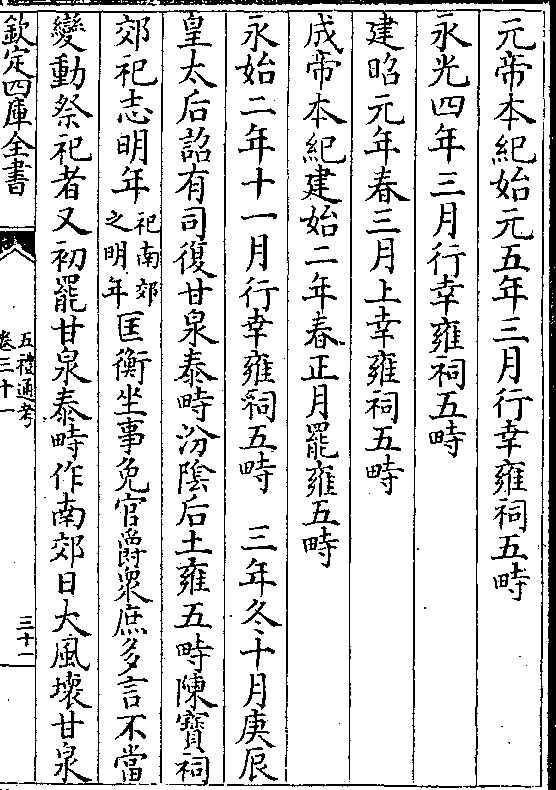 元帝本紀始元五年三月行幸雍祠五畤
永光四年三月行幸雍祠五畤
建昭元年春三月上幸雍祠五畤
成帝本紀建始二年春正月罷雍五畤
永始二年十一月行幸雍祠五畤　三年冬十月庚辰
皇太后詔有司復甘泉泰畤汾陰后土雍五畤陳寶祠
郊祀志明年祀南郊之明年匡衡坐事免官爵衆庶多言不當
變動祭祀者又初罷甘泉泰畤作南郊日大風壞甘泉
欽定四庫全書
五禮通考
卷三十一
三十二